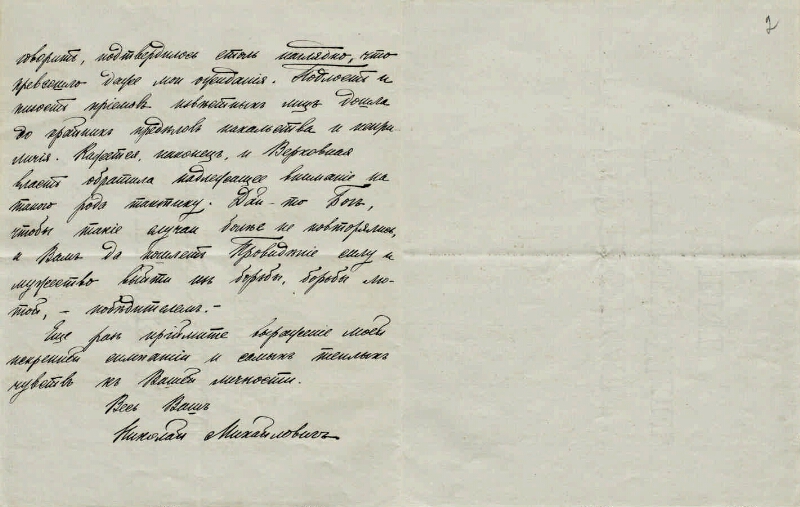 2
говорить, подтвердилось столь наглядно, что
превзошло даже мои ожидания. Подлость и
низость пріемовъ извѣстныхъ лицъ дошла
до крайнихъ предѣловъ нахальства и непри-
личія. Кажется, наконецъ, и Верховная
власть обратила надлежащее вниманіе на
такого рода тактику. Дай-то Богъ,
чтобы такіе случаи болѣе не повторялись,
а Вамъ да пошлетъ Провидѣніе силу и
мужество выйти изъ борьбы, борьбы лю-
той, - побѣдителемъ. -
Еще разъ прiймите выраженіе моей
искренней симпатіи и самыхъ теплыхъ
чувствъ къ Вашей личности.
Весь Вашъ
Николай Михаиловичъ